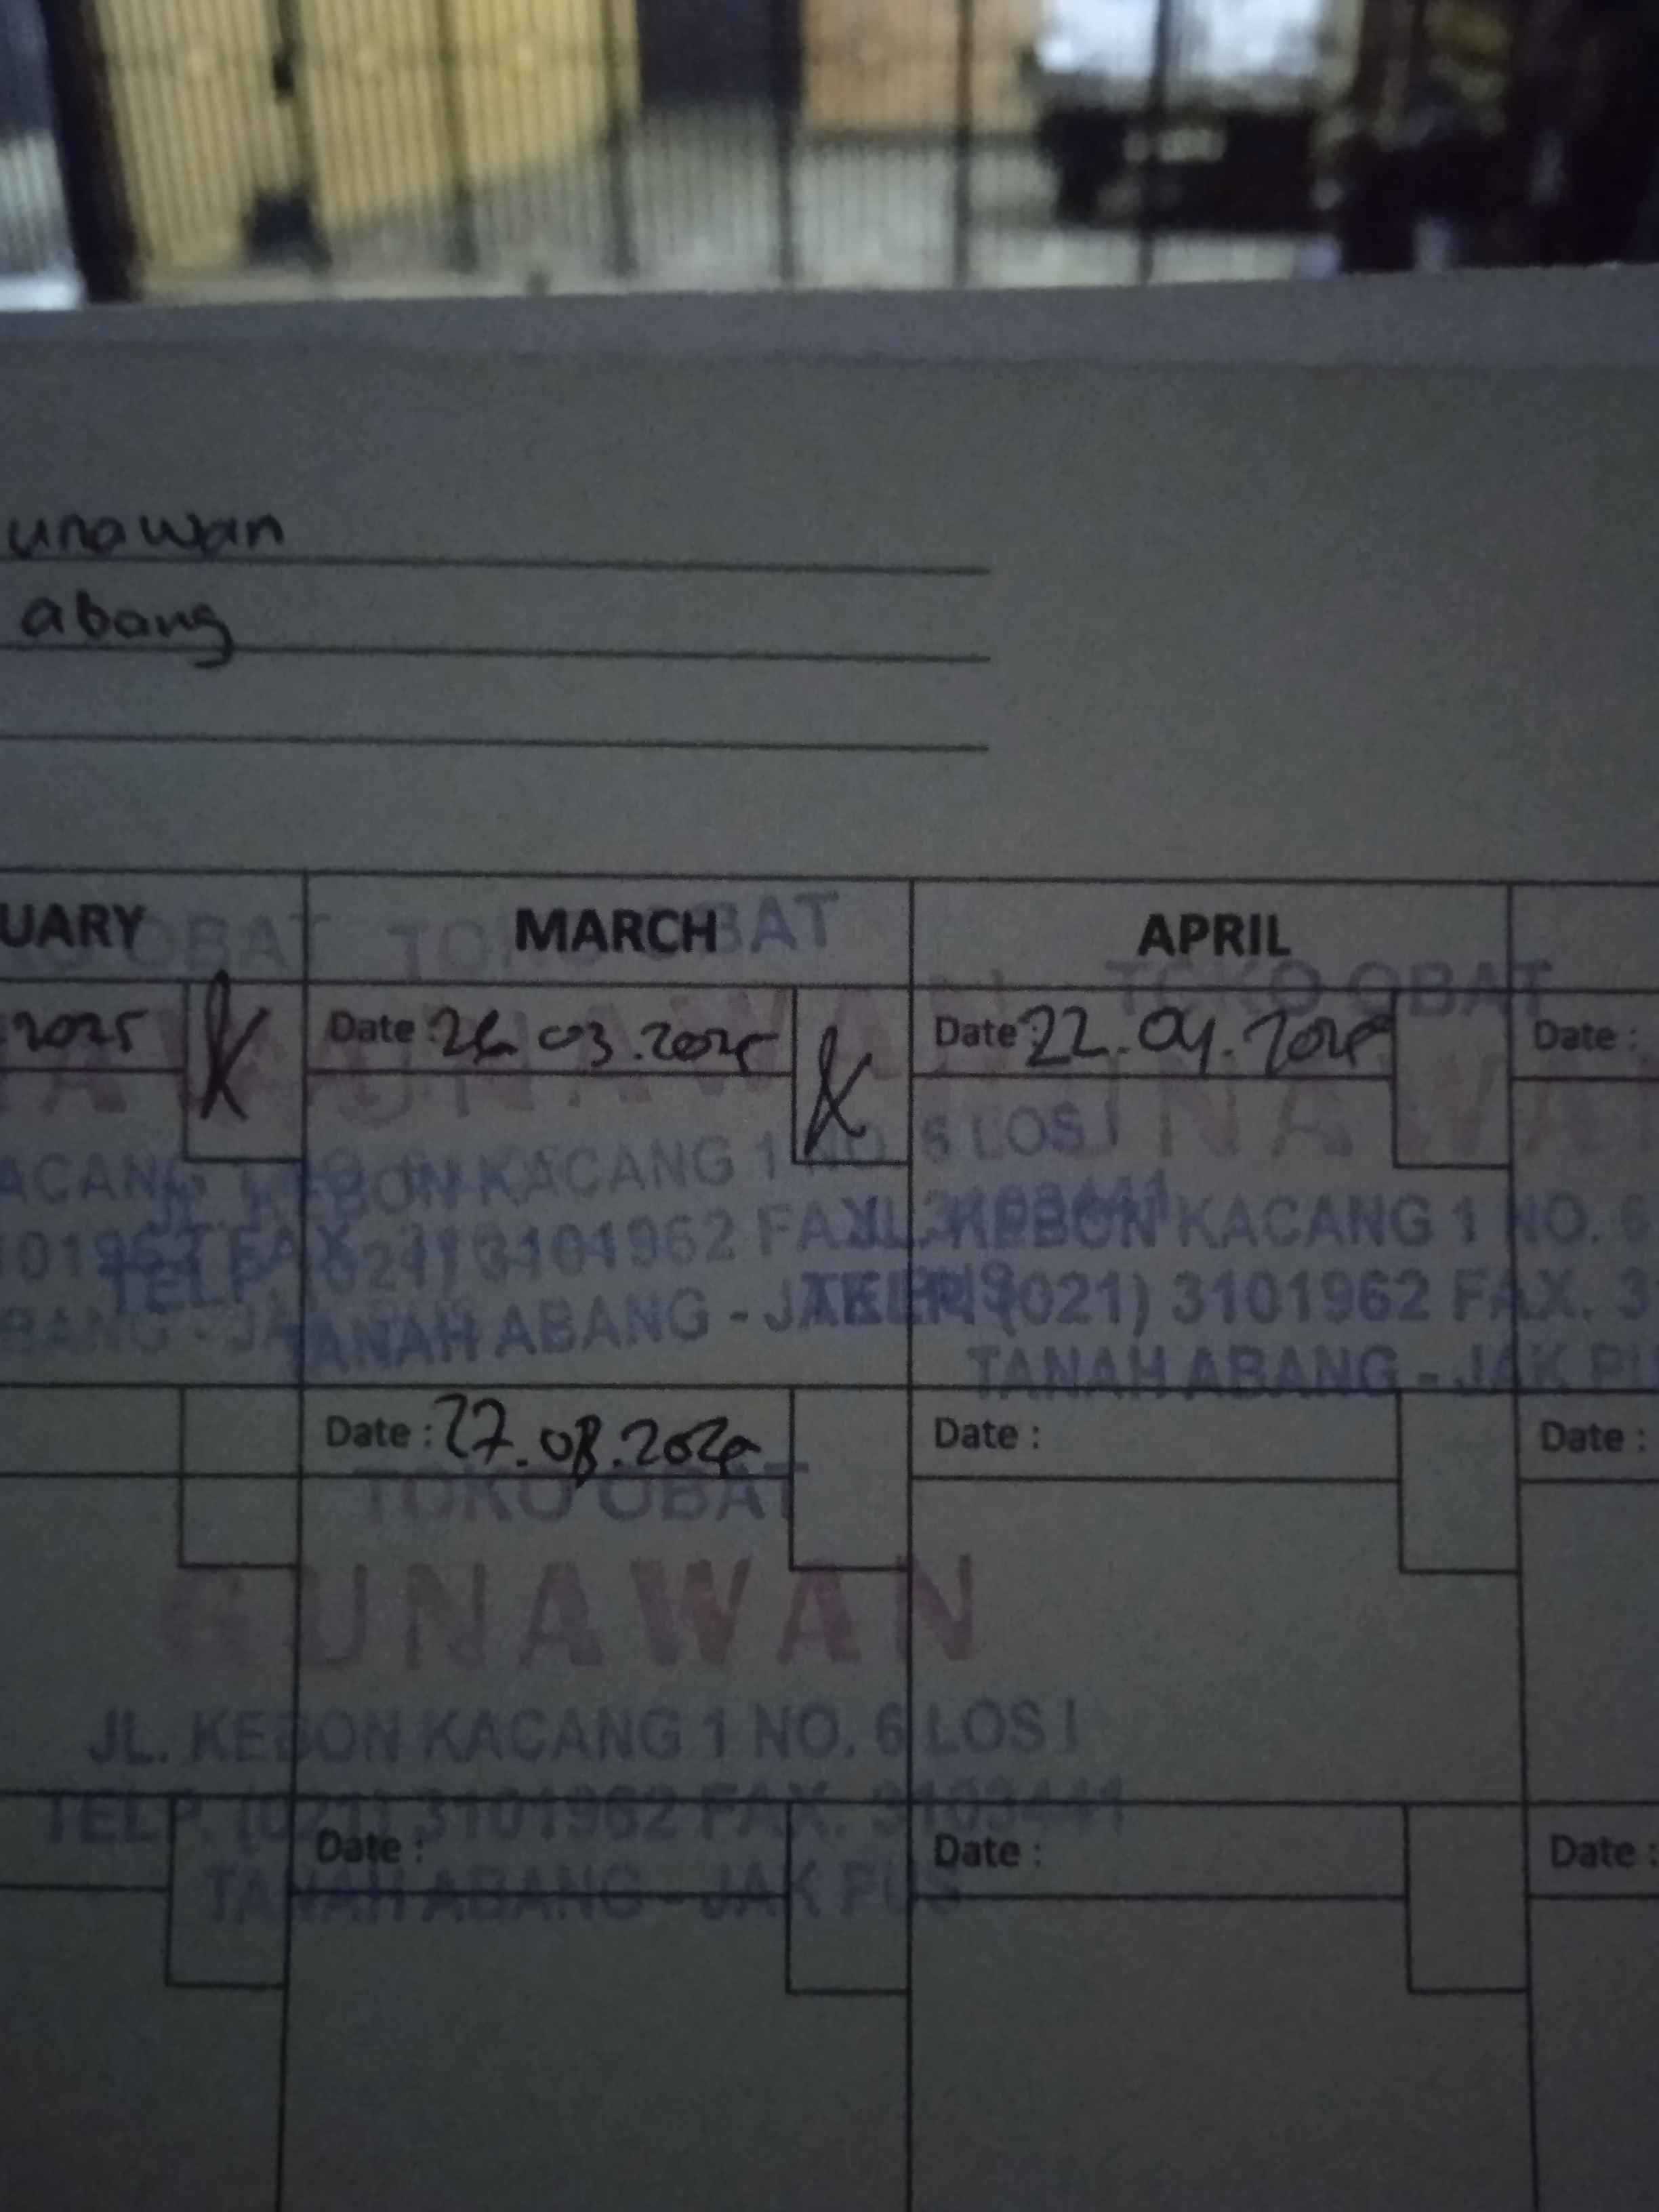 unawan
abang
UARY MARCH APRIL
TOKO OBAT TOKO OBAT
2025 Date : 03.2025 Date : 22.04.2025 Date :
GUNAWAN
ACANG JL. KEBON KACANG 1 NO. 6 LOS I JL. KEBON KACANG 1 NO. 6
TELP. (021) 3101962 FAX. 3103441 TELP. (021) 3101962 FAX. 3
BANG - JA TANAH ABANG - JAK TANAH ABANG - JAK PU
Date : 27.08.202 Date : Date :
TOKO OBAT
GUNAWAN
JL. KEBON KACANG 1 NO. 6 LOS I
TELP. (021) 3101962 FAX. 3103441
Date : Date : Date :
TANAH ABANG - JAK PUS